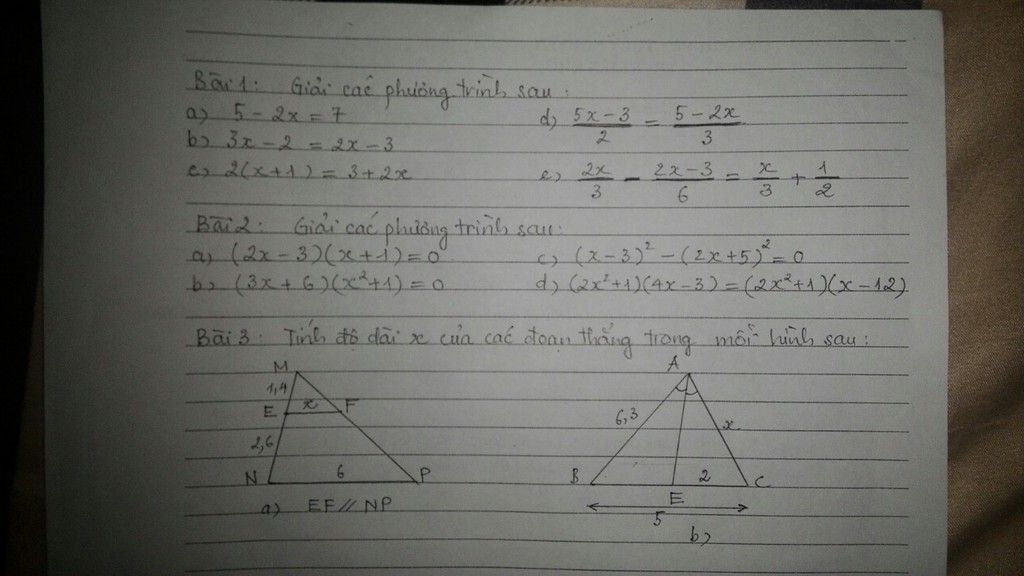 Bài 1: Giải các phương trình sau:
a) 5 - 2x = 7
d) (5x - 3)/2 = (5 - 2x)/3
b) 3x - 2 = 2x - 3
c) 2(x + 1) = 3 + 2x
e) 2x/3 - (2x - 3)/6 = x/3 + 1/2
Bài 2: Giải các phương trình sau:
a) (2x - 3)(x + 1) = 0
c) (x - 3)² - (2x + 5)² = 0
b) (3x + 6)(x² + 1) = 0
d) (2x² + 1)(4x - 3) = (2x² + 1)(x - 12)
Bài 3: Tính độ dài x của các đoạn thẳng trong mỗi hình sau:
M
1,4
E x F
2,6
N 6 P
a) EF // NP
A
6,3 x
B 2 C
E
5
b)